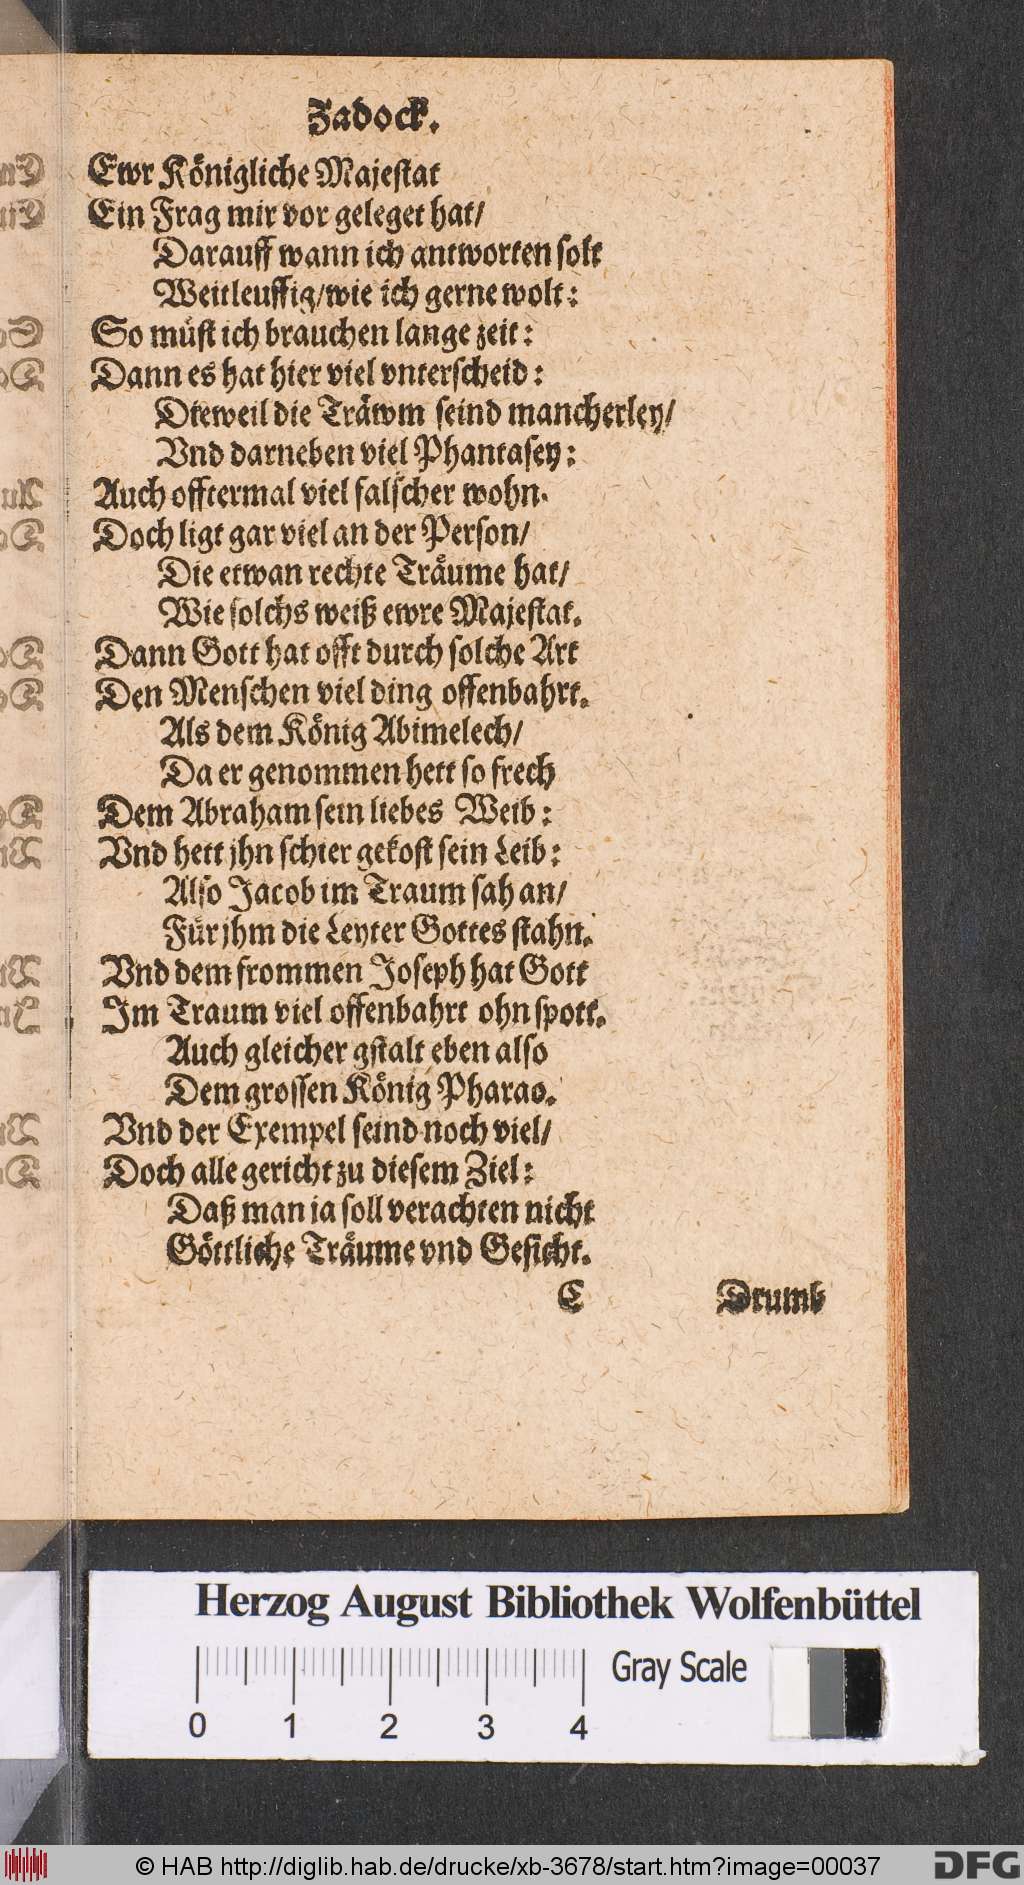 Zadock.
Ewr Königliche Majestat
Ein Frag mir vor geleget hat/
Darauff wann ich antworten solt
Weitleuffig/wie ich gerne wolt:
So müst ich brauchen lange zeit:
Dann es hat hier viel vnterscheid:
Dieweil die Träwm seind mancherley/
Vnd darneben viel Phantasey:
Auch offtermal viel falscher wohn.
Doch ligt gar viel an der Person/
Die etwan rechte Träume hat/
Wie solchs weiß ewre Majestat.
Dann Gott hat offt durch solche Art
Den Menschen viel ding offenbahrt.
Als dem König Abimelech/
Da er genommen hett so frech
Dem Abraham sein liebes Weib:
Vnd hett jhn schier gekost sein Leib:
Also Jacob im Traum sah an/
Für jhm die Leyter Gottes stahn.
Vnd dem frommen Joseph hat Gott
Im Traum viel offenbahrt ohn spott.
Auch gleicher gstalt eben also
Dem grossen König Pharao.
Vnd der Exempel seind noch viel/
Doch alle gericht zu diesem Ziel:
Daß man ja soll verachten nicht
Göttliche Träume vnd Gesicht.
C Drumb
Herzog August Bibliothek Wolfenbüttel
Gray Scale
0 1 2 3 4
© HAB http://diglib.hab.de/drucke/xb-3678/start.htm?image=00037
DFG